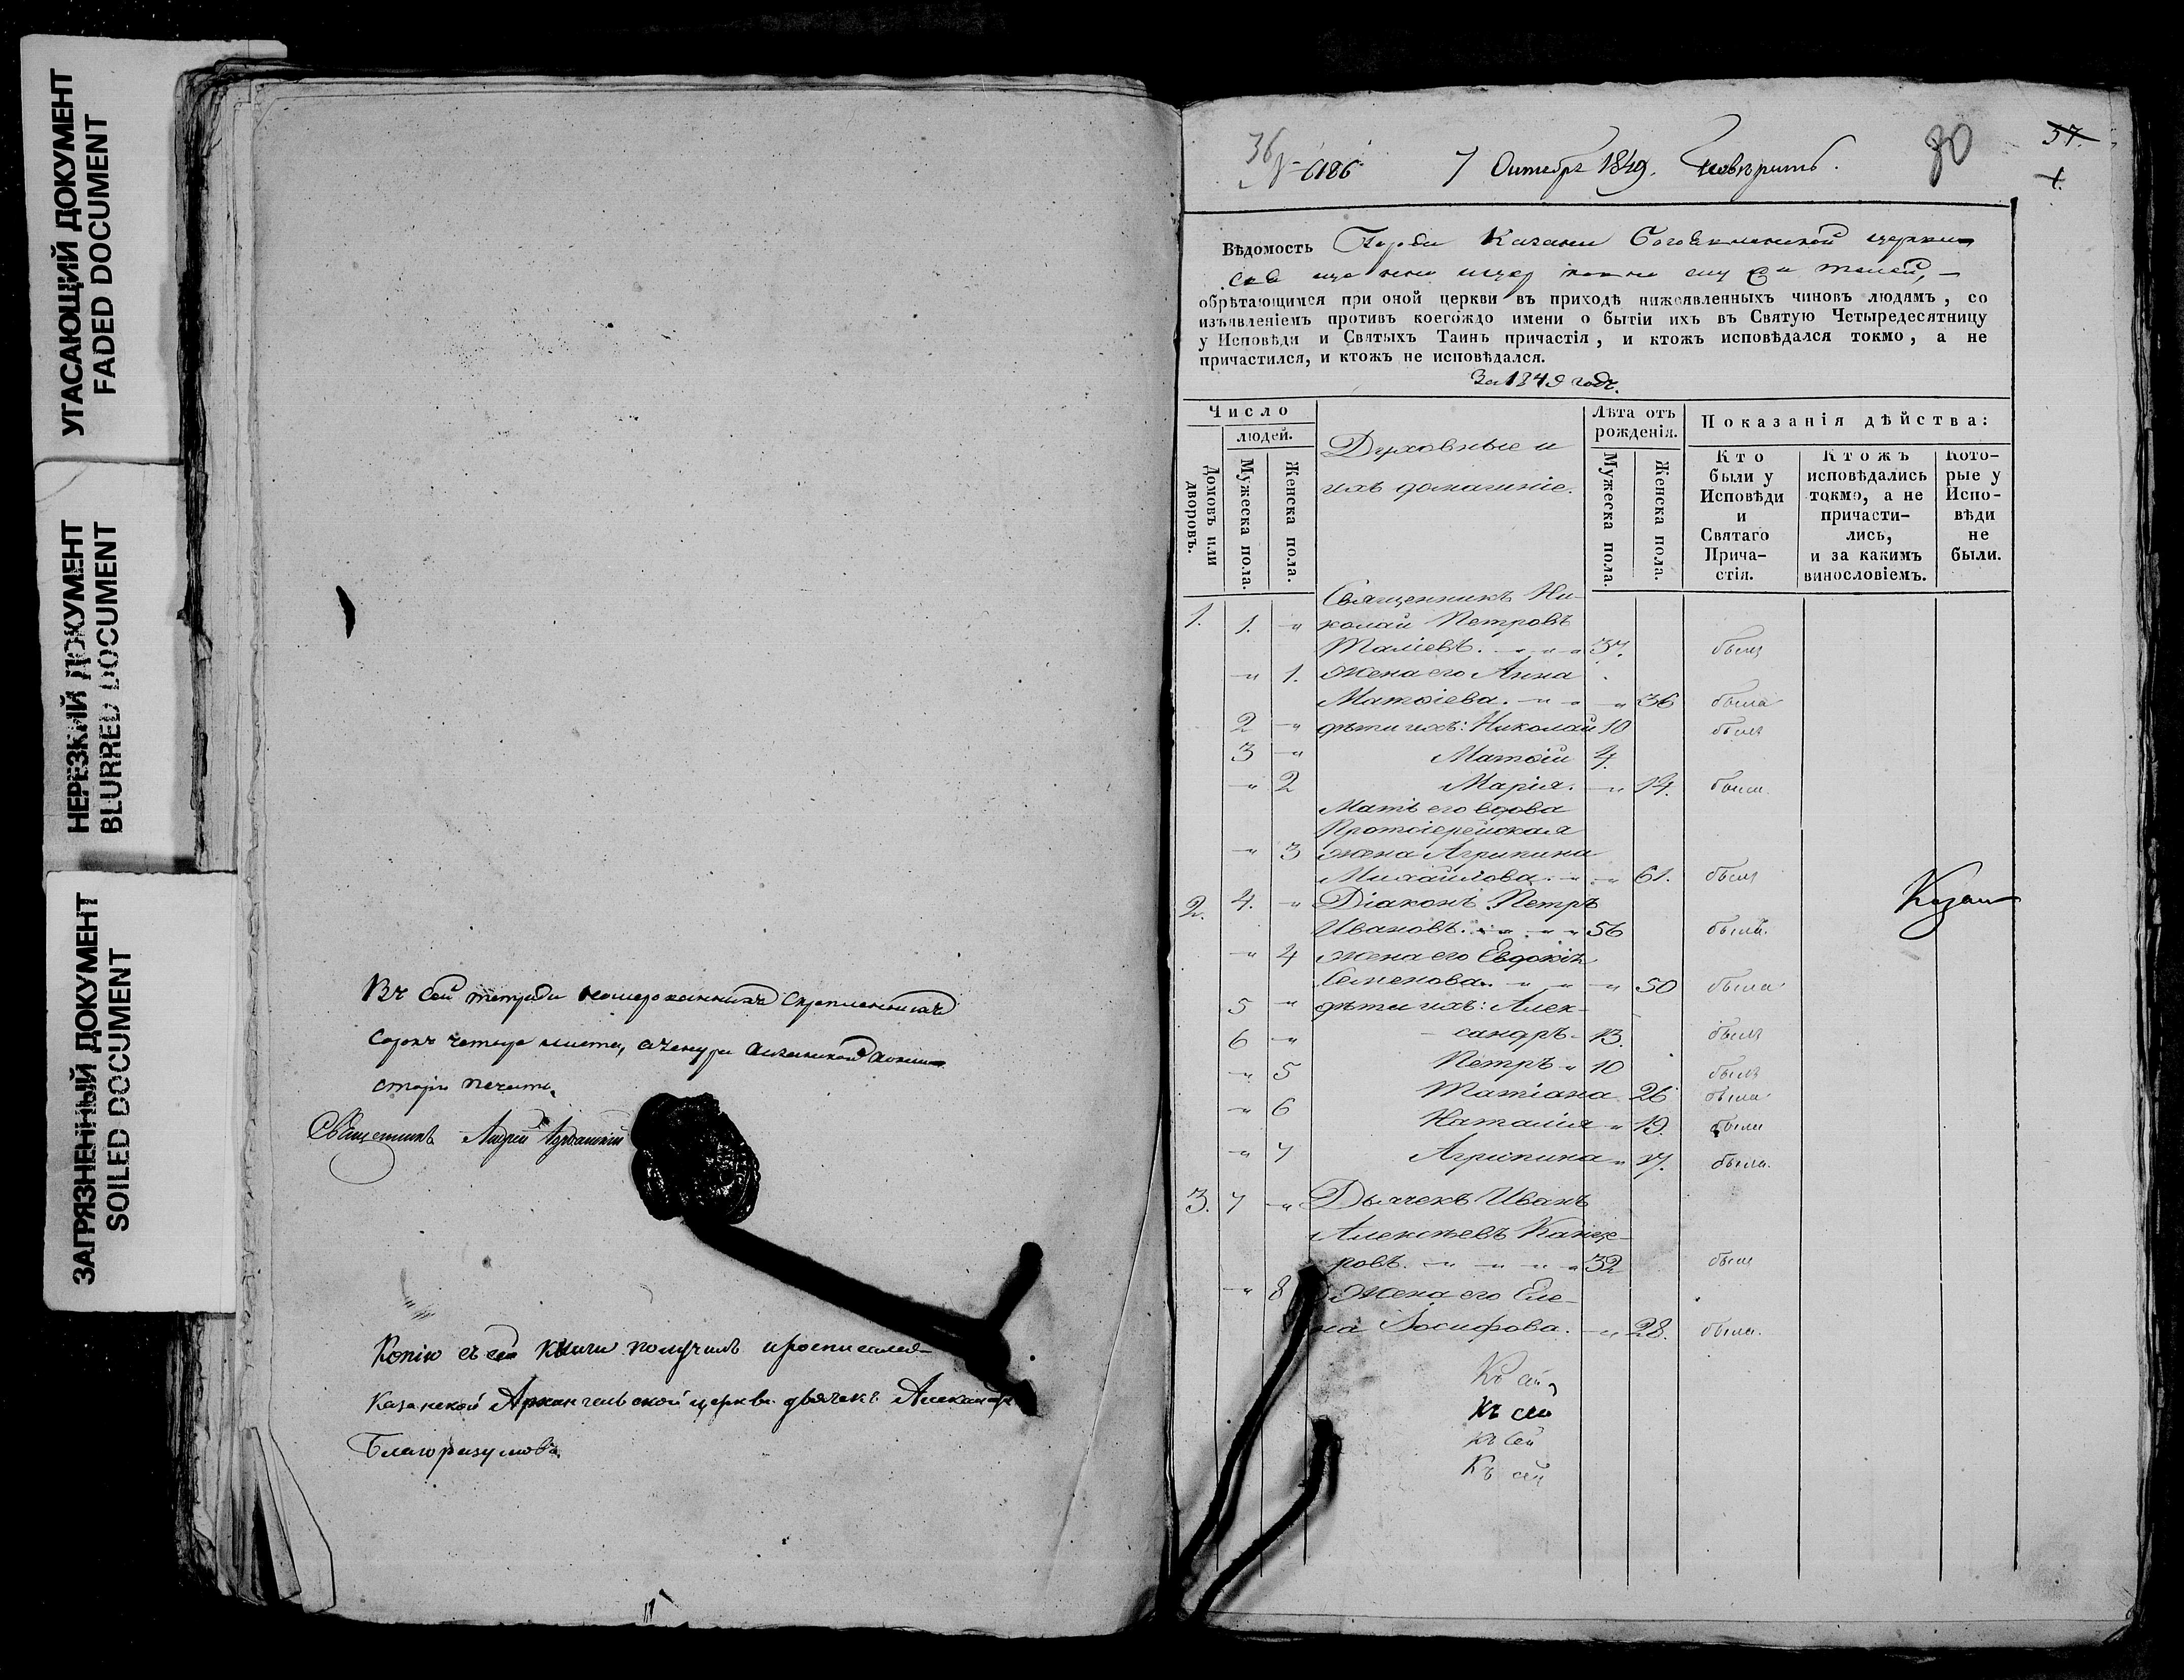 УГАСАЮЩИЙ ДОКУМЕНТ
FADED DOCUMENT
НЕРЕЗКИЙ ДОКУМЕНТ
BLURRED DOCUMENT
ЗАГРЯЗНЕННЫЙ ДОКУМЕНТ
SOILED DOCUMENT
Въ сей тетради
сорокъ четыре листа,
печать
Священникъ Андрей
Копію съ сей книги получилъ
Казанской Архангельской церкви дьячекъ Александръ
Благоразумовъ
6186 7 Октября 1849. 80 37.
1.
Вѣдомость Казани Богоявленской церкви
обрѣтающимся при оной церкви въ приходѣ нижеявленныхъ чиновъ людямъ, со
изъявленіемъ противъ коегождо имени о бытіи ихъ въ Святую Четыредесятницу
у Исповѣди и Святыхъ Таинъ причастія, и ктожъ исповѣдался токмо, а не
причастился, и ктожъ не исповѣдался.
За 1849 годъ.
Число
людей.
Домовъ или дворовъ.
Мужеска пола.
Женска пола.
Духовные и
ихъ домашніе.
Лѣта отъ
рожденія.
Мужеска пола.
Женска пола.
Показанія дѣйства:
Кто
были у
Исповѣди
и
Святаго
Прича-
стія.
Ктожъ
исповѣдались
токмо, а не
причасти-
лись,
и за какимъ
винословіемъ.
Кото-
рые у
Испо-
вѣди
не
были.
Священникъ Ни-
1. 1. " колай Петровъ
Таліевъ. " " " 37. былъ
" 1. Жена его Анна
Матѳіева. " " " 36 была
2 " дѣти ихъ: Николай 10 былъ
3 " Матѳій 4.
" 2 Марія. " 14. была
Мать его вдова
Протоіерейская
" 3 жена Агрипина
Михайлова. " " 61. была
2. 4. " Діаконъ Петръ
Ивановъ. " " " " 56 былъ
" 4 жена его Евдокія
Семенова. " " " 50 была
5 " дѣти ихъ: Алек-
6 " сандръ - 13. былъ
" 5 Петръ " 10 былъ
" 6 Татіана 26 была
Наталія " 19. была
" 7 Агрипина " 17. была
3. 7 " Дьячекъ Иванъ
Алексѣевъ
ровъ. " " " " 32 былъ
" 8 Жена его Еле-
на Іосифова. " 28. была.
Казан
Къ сей
Къ сей
Къ сей
Къ сей